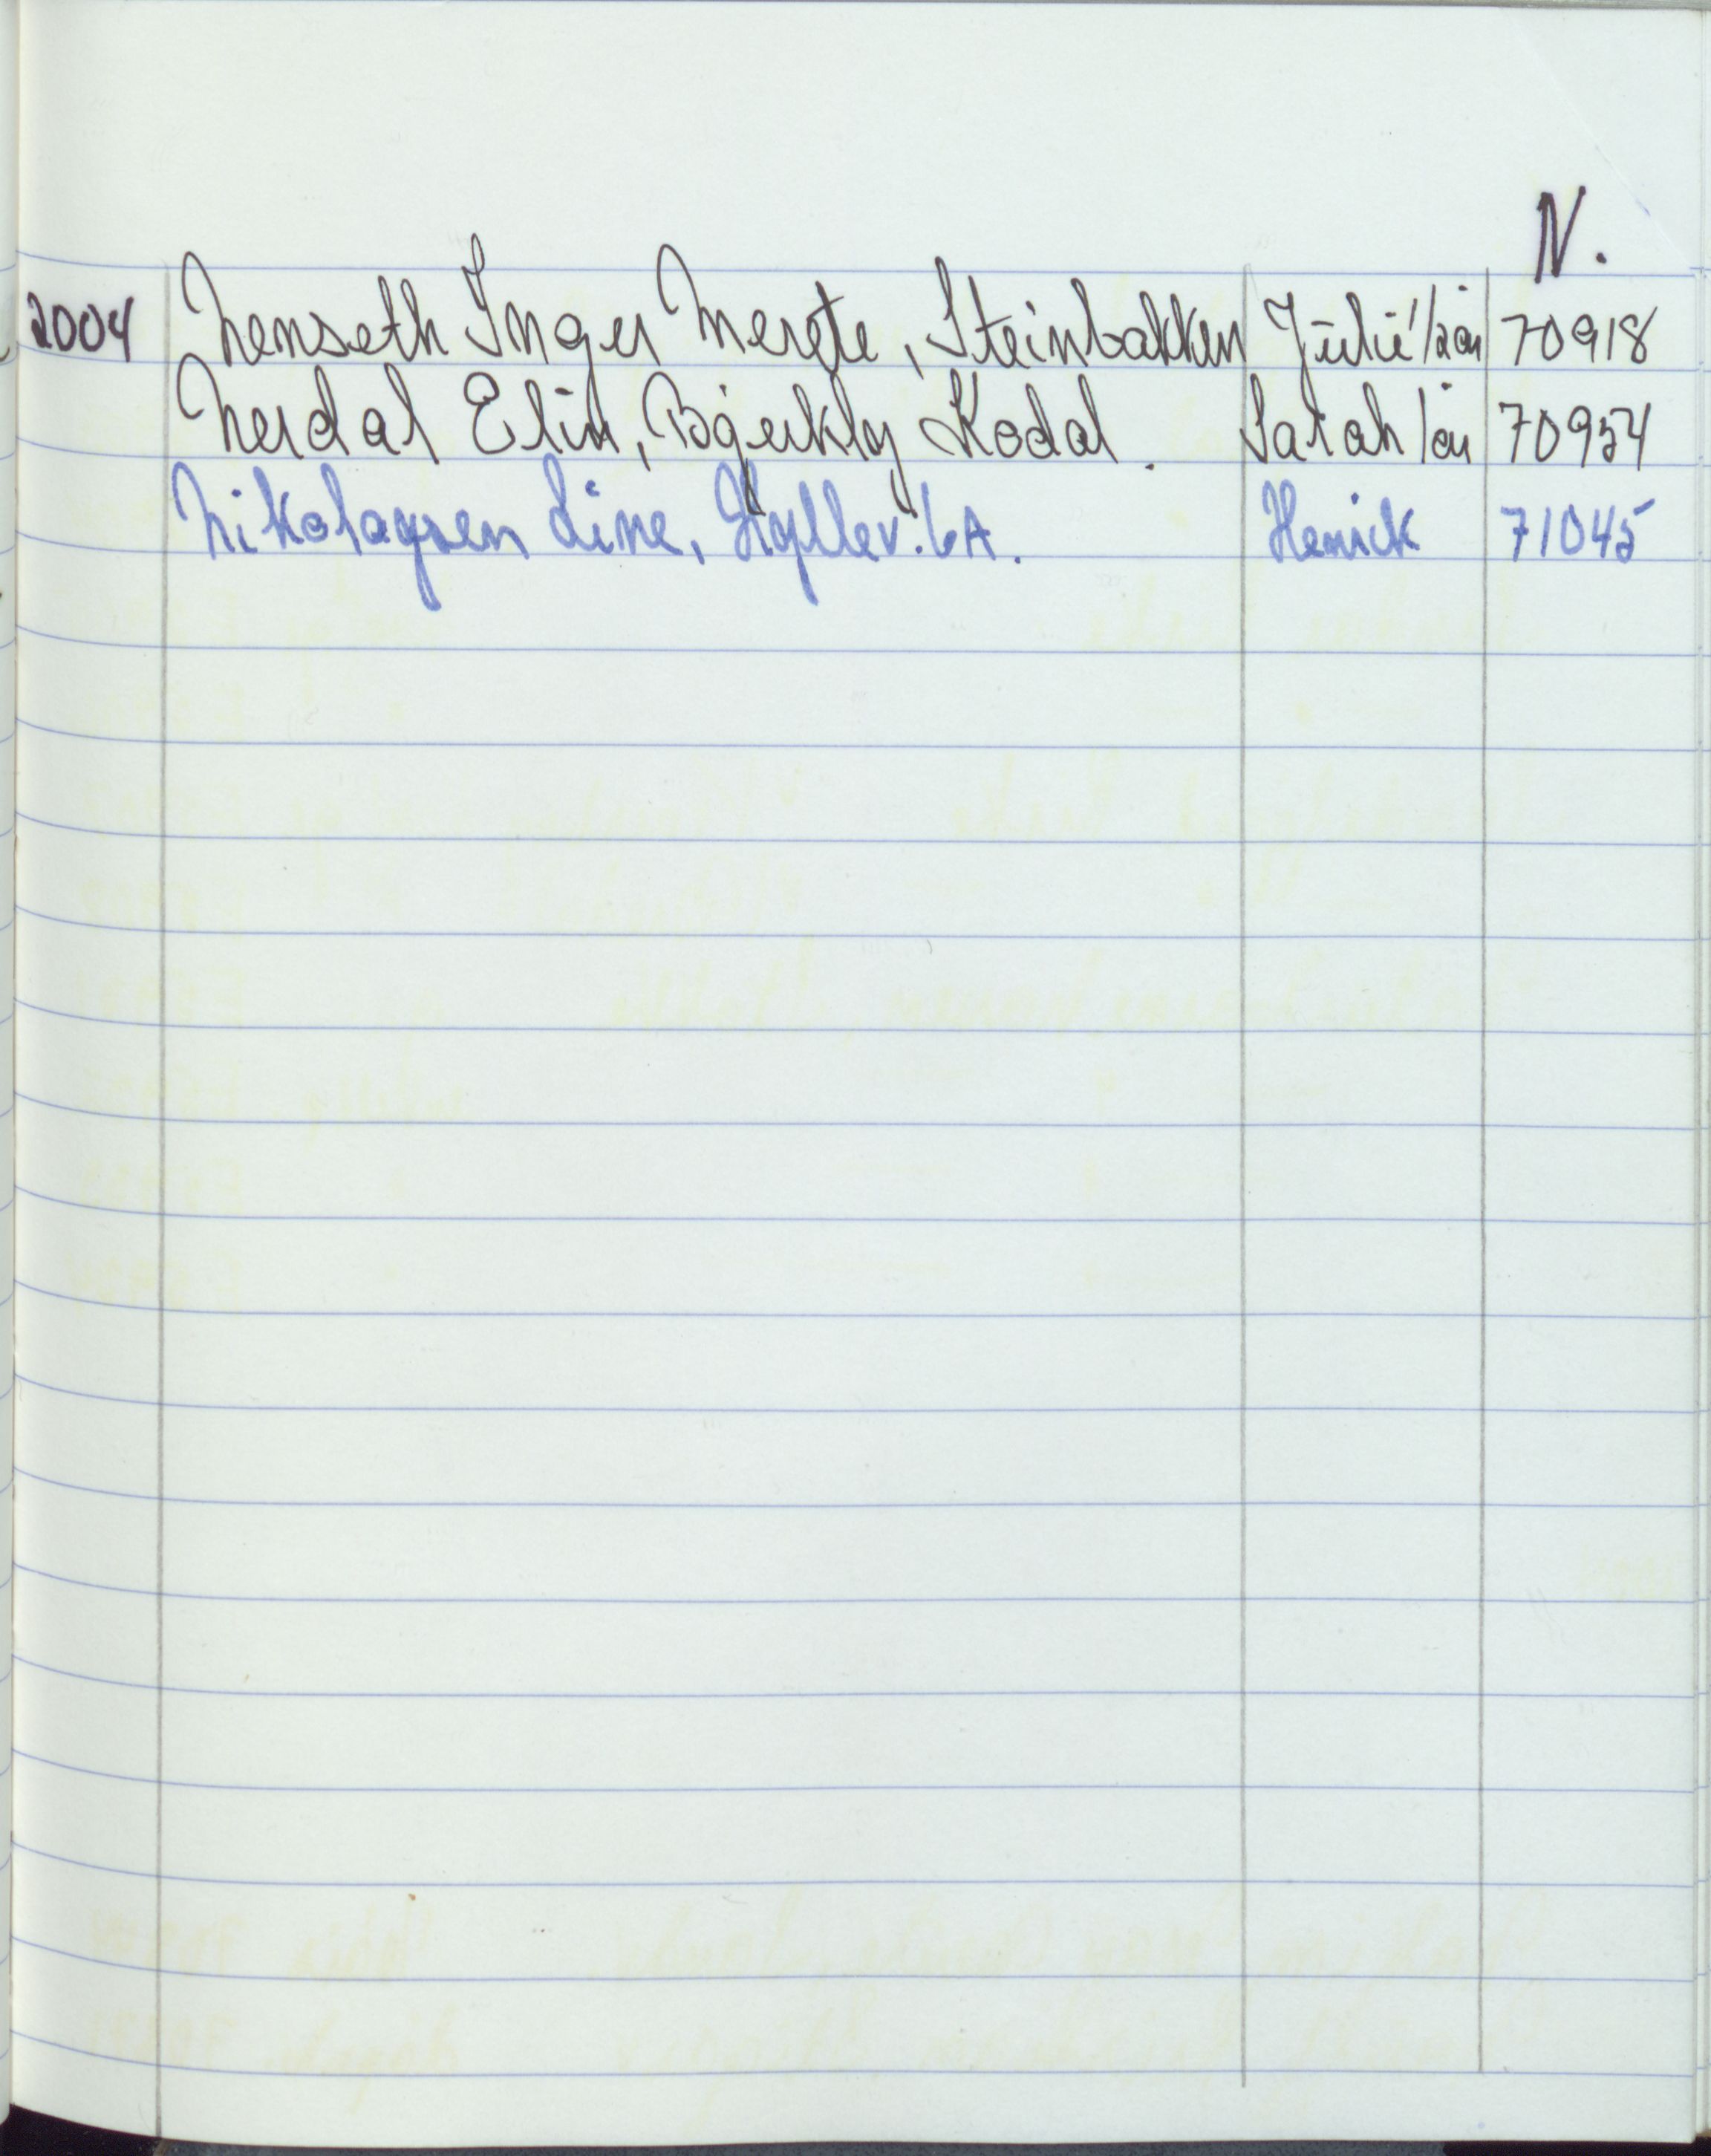 N.
2004 Nenseth Inger Merete, Steinbakken Julie 1/2 år 70918
Nerdal Elin, Bjerkly Kodal. Sarah 1 år 70954
Nikolaysen Line, Hyllev. 6A. Henrick 71045